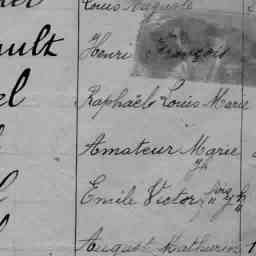 Louis Auguste
ault Henri François
el Raphaële Louis Marie
Amateur Marie
Emile Victor
August Mathurin